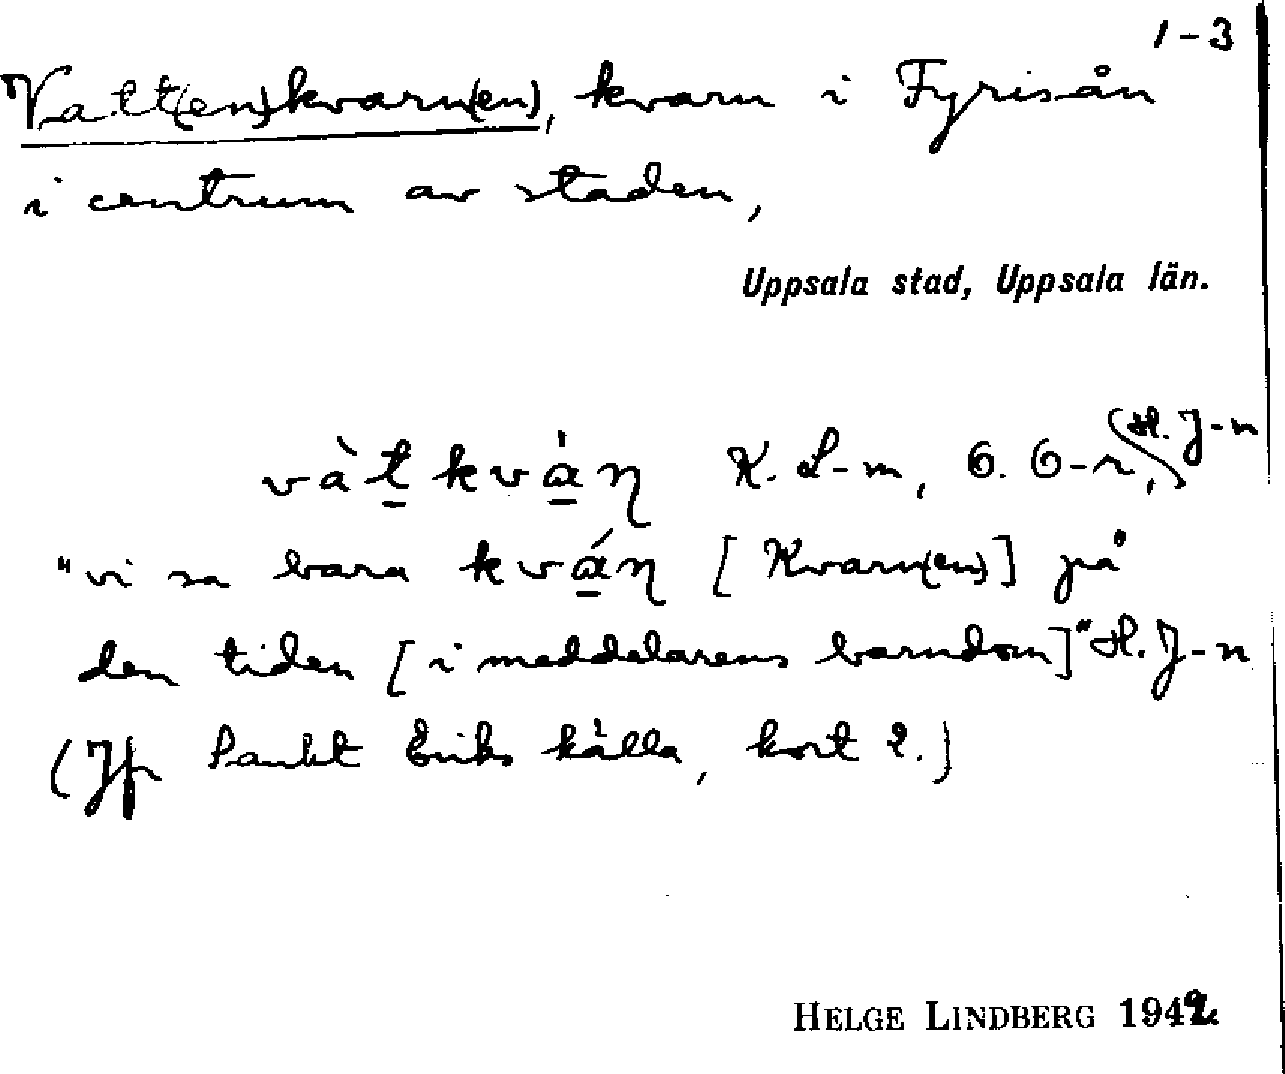 1-3
Vatt(en)kvarn(en), kvarn i Fyrisån
i centrum av staden,
Uppsala stad, Uppsala län.
(H. J-n
vàt̠kvὰ̠ɳ K. L-m, G. G-r,
"vi sa bara kvά̠ɳ [Kvarn(en)] på
den tiden [i meddelarens barndom]" H. J-n
(Jfr Sankt Eriks källa, kort 2.)
HELGE LINDBERG 1942